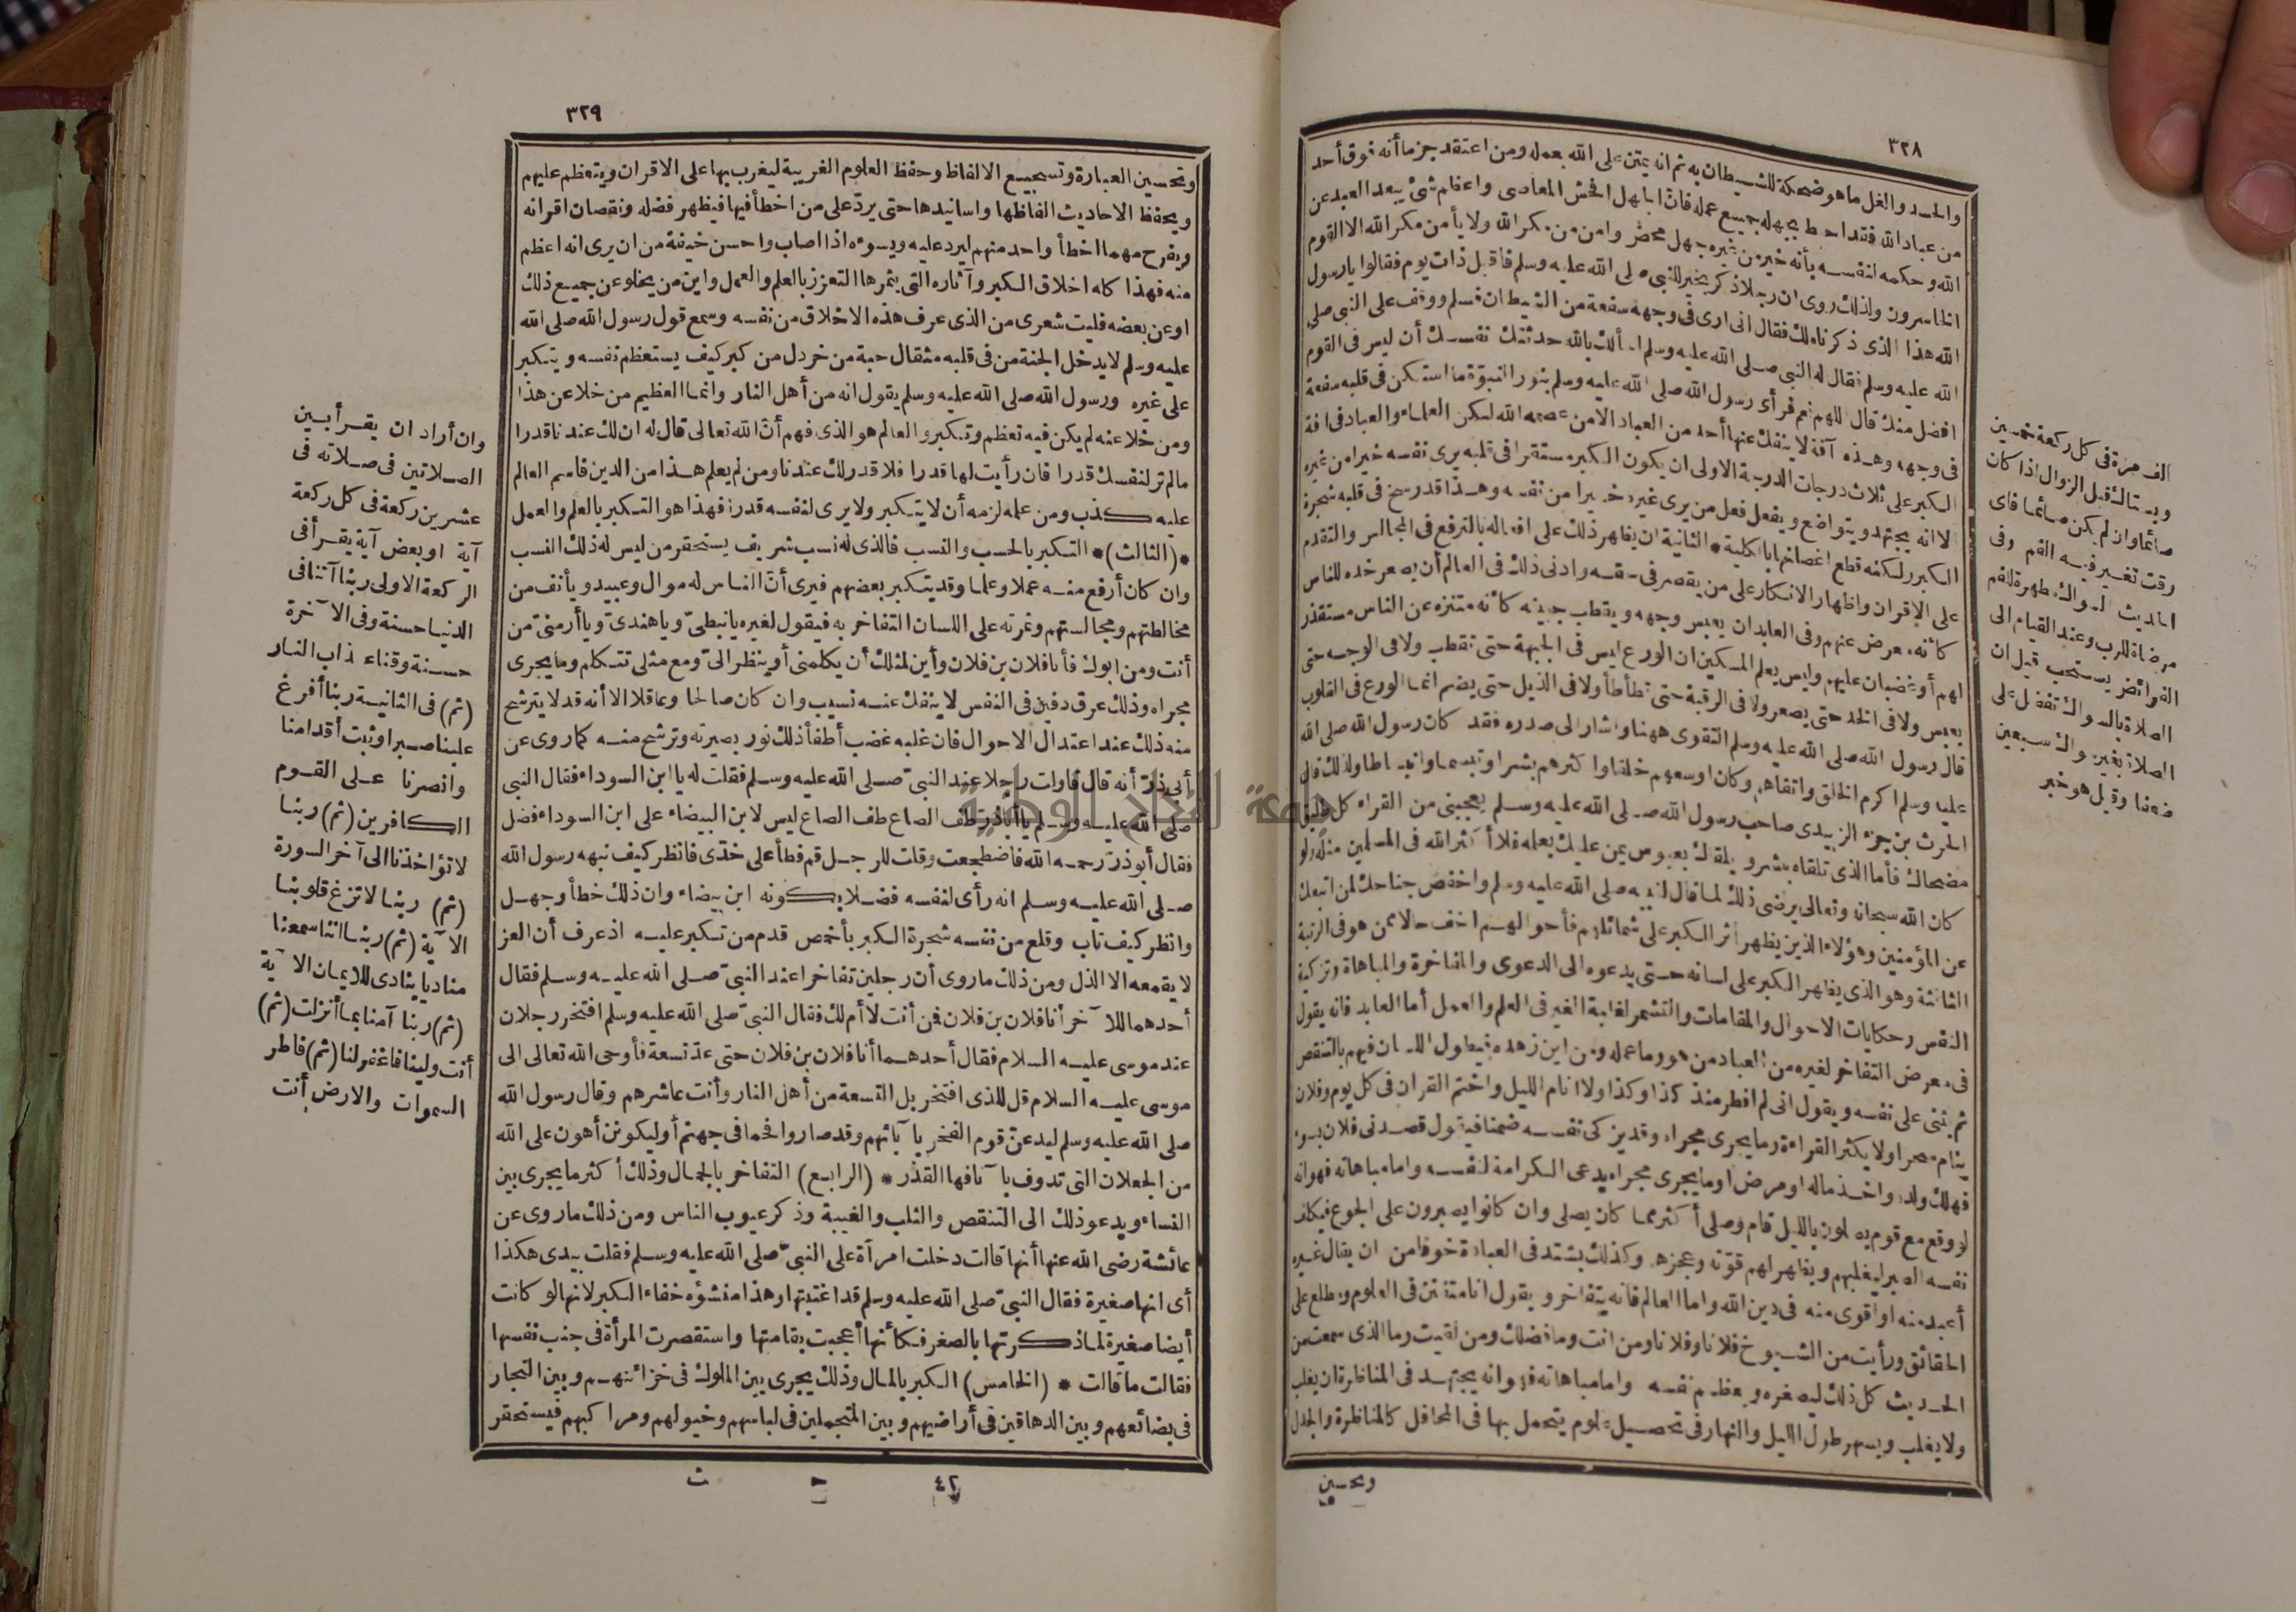 ٣٢٨
والحسد والغل ما هو ضحكة للشيطان به ثم انه يمتن على الله بعمله ومن اعتقد جزما أنه فوق أحد
من عباد الله فقد احبط بجهله جميع عمله فان الجهل افحش المعاصى واعظم شئ يبعد العبد عن
الله وحكمه لنفسه بأنه خير من غيره جهل محض وامن من مكر الله ولا يأمن مكر الله الا القوم
الخاسرون ولذلك روى ان رجلا ذكر بخير للنبى صلى الله عليه وسلم فاقبل ذات يوم فقالوا يا رسول
الله هذا الذى ذكرناه لك فقال انى ارى فى وجهه سفعة من الشيطان فسلم ووقف على النبى صلى
الله عليه وسلم فقال له النبى صلى الله عليه وسلم اسألك بالله حدثتك نفسك أن ليس فى القوم
افضل منك قال اللهم نعم فرأى رسول الله صلى الله عليه وسلم بنور النبوة ما استكن فى قلبه سفعة
فى وجهه وهذه آفة لا ينفك عنها أحد من العباد الا من عصمه الله لكن العلماء والعباد فى افة
الكبر على ثلاث درجات الدرجة الاولى ان يكون الكبر مستقرا فى قلبه يرى نفسه خيرا من غيره
الا انه يجتهد ويتواضع ويفعل فعل من يرى غيره خيرا من نفسه وهذا قد رسخ فى قلبه شجرة
الكبر ولكنه قطع اغصانها بالكلية * الثانية ان يظهر ذلك على افعاله بالترفع فى المجالس والتقدم
على الاقران واظهار الانكار على من يقصر فى حقه وادنى ذلك فى العالم أن يصعر خده للناس
كأنه معرض عنهم وفى العابد ان يعبس وجهه ويقطب جبينه كأنه متنزه عن الناس مستقذر
لهم أو غضبان عليهم وليس يعلم المسكين ان الورع ليس فى الجبهة حتى تقطب ولا فى الوجه حتى
يعبس ولا فى الخد حتى يصعر ولا فى الرقبة حتى تطأطأ ولا فى الذيل حتى يضم انما الورع فى القلوب
قال رسول الله صلى الله عليه وسلم التقوى ههنا واشار الى صدره فقد كان رسول الله صلى الله
عليه وسلم اكرم الخلق واتقاهم وكان اوسعهم خلقا واكثرهم بشرا وتبسما وانبساطا ولذلك قال
الحرث بن جزء الزبيدى صاحب رسول الله صلى الله عليه وسلم يعجبنى من القراء كل طليق
مضحاك فأما الذى تلقاه ببشر ويلقاك بعبوس يمن عليك بعلمه فلا أكثر الله فى المسلمين مثله ولو
كان الله سبحانه وتعالى يرضى ذلك لما قال لنبيه صلى الله عليه وسلم واخفض جناحك لمن اتبعك
من المؤمنين وهؤلاء الذين يظهر أثر الكبر على شمائلهم فأحوالهم اخف حالا ممن هو فى الرتبة
الثالثة وهو الذى يظهر الكبر على لسانه حتى يدعوه الى الدعوى والمفاخرة والمباهاة وتزكية
النفس وحكايات الاحوال والمقامات والتشمر لغلبة الغير فى العلم والعمل أما العابد فانه يقول
فى معرض التفاخر لغيره من العباد من هو وما عمله ومن اين زهده فيطول اللسان فيهم بالتنقص
ثم يثنى على نفسه ويقول انى لم افطر منذ كذا وكذا ولا انام الليل واختم القران فى كل يوم وفلان
ينام سحرا ولا يكثر القراءة وما يجرى مجراه وقد يزكى نفسه ضمنا فيقول قصدنى فلان بسوء
فهلك ولده واخذ ماله او مرض او ما يجرى مجراه يدعى الكرامة لنفسه واما مباهاته فهو انه
لو وقع مع قوم يصلون بالليل قام وصلى أكثر مما كان يصلى وان كانوا يصبرون على الجوع فيكلف
نفسه الصبر ليغلبهم ويظهر لهم قوته وعجزهم وكذلك يشتد فى العبادة خوفا من ان يقال غيره
أعبد منه او اقوى منه فى دين الله واما العالم فانه يتفاخر ويقول انا متفنن فى العلوم ومطلع على
الحقائق ورأيت من الشيوخ فلانا وفلانا ومن انت وما فضلك ومن لقيت وما الذى سمعت من
الحديث كل ذلك ليصغره ويعظم نفسه واما مباهاته فهو انه يجتهد فى المناظرة ان يغلب
ولا يغلب ويسهر طول الليل والنهار فى تحصيل علوم يتجمل بها فى المحافل كالمناظرة والجدل
وتحسين
الف مرة فى كل ركعة خمسين
ويستاك قبل الزوال اذا كان
صائما وان لم يكن صائما فاى
وقت تغير فيه الفم وفى
الحديث السواك مطهرة للفم
مرضاة للرب وعند القيام الى
الفرائض يستحب قيل ان
الصلاة بالسواك تفضل على
الصلاة بغير سواك سبعين
ضعفا وقيل هو خبر
٣٢٩
وتحسين العبارة وتسجيع الالفاظ وحفظ العلوم الغريبة ليغرب بها على الاقران ويتعظم عليهم
ويحفظ الاحاديث الفاظها واسانيدها حتى يردّ على من اخطأ فيها فيظهر فضله ونقصان اقرانه
ويفرح مهما اخطأ واحد منهم ليرد عليه ويسوءه اذا اصاب واحسن خيفة من ان يرى انه اعظم
منه فهذا كله اخلاق الكبر وآثاره التى يثمرها التعزز بالعلم والعمل واين من يخلو عن جميع ذلك
او عن بعضه فليت شعرى من الذى عرف هذه الاخلاق من نفسه وسمع قول رسول الله صلى الله
عليه وسلم لا يدخل الجنة من فى قلبه مثقال حبة من خردل من كبر كيف يستعظم نفسه ويتكبر
على غيره ورسول الله صلى الله عليه وسلم يقول انه من أهل النار وانما العظيم من خلا عن هذا
ومن خلا عنه لم يكن فيه تعظم وتكبر والعالم هو الذى فهم أنّ الله تعالى قال له ان لك عندنا قدرا
مالم تر لنفسك قدرا فان رأيت لها قدرا فلا قدر لك عندنا ومن لم يعلم هذا من الدين فاسم العالم
عليه كذب ومن علمه لزمه أن لا يتكبر ولا يرى لنفسه قدرا فهذا هو التكبر بالعلم والعمل
* (الثالث) * التكبر بالحسب والنسب فالذى له نسب شريف يستحقر من ليس له ذلك النسب
وان كان أرفع منه عملا وعلما وقد يتكبر بعضهم فيرى أنّ الناس له موال وعبيد ويأنف من
مخالطتهم ومجالستهم وثمرته على اللسان التفاخر به فيقول لغيره يا نبطىّ ويا هندىّ ويا أرمنىّ من
أنت ومن ابوك فأنا فلان بن فلان وأين لمثلك أن يكلمنى أو ينظر الىّ ومع مثلى تتكلم وما يجرى
مجراه وذلك عرق دفين فى النفس لا ينفك عنه نسيب وان كان صالحا وعاقلا الا أنه قد لا يترشح
منه ذلك عند اعتدال الاحوال فان غلبه غضب أطفأ ذلك نور بصيرته وترشح منه كما روى عن
أبى ذرّ أنه قال قاولت رجلا عند النبىّ صلى الله عليه وسلم فقلت له يا ابن السوداء فقال النبى
صلى الله عليه وسلم يا أباذر طف الصاع طف الصاع ليس لابن البيضاء على ابن السوداء فضل
فقال أبو ذرّ رحمه الله فاضطجعت وقلت للرجل قم فطأ على خدّى فانظر كيف نبهه رسول الله
صلى الله عليه وسلم انه رأى لنفسه فضلا بكونه ابن بيضاء وان ذلك خطأ وجهل
وانظر كيف تاب وقلع من نفسه شجرة الكبر بأخمص قدم من تكبر عليه اذ عرف أن العز
لا يقمعه الا الذل ومن ذلك ما روى أن رجلين تفاخرا عند النبىّ صلى الله عليه وسلم فقال
أحدهما للآخر أنا فلان بن فلان فمن أنت لا أم لك فقال النبىّ صلى الله عليه وسلم افتخر رجلان
عند موسى عليه السلام فقال أحدهما أنا فلان بن فلان حتى عدّ تسعة فأوحى الله تعالى الى
موسى عليه السلام قل للذى افتخر بل التسعة من أهل النار وأنت عاشرهم وقال رسول الله
صلى الله عليه وسلم ليدعنّ قوم الفخر بآبائهم وقد صاروا فحما فى جهنم أو ليكوننّ أهون على الله
من الجعلان التى تدوف بآنافها القذر * (الرابع) التفاخر بالجمال وذلك أكثر ما يجرى بين
النساء ويدعو ذلك الى التنقص والثلب والغيبة وذكر عيوب الناس ومن ذلك ما روى عن
عائشة رضى الله عنها أنها قالت دخلت امرأة على النبىّ صلى الله عليه وسلم فقلت بيدى هكذا
أى انها صغيرة فقال النبىّ صلى الله عليه وسلم قد اغتبتها وهذا منشؤه خفاء الكبر لانها لو كانت
أيضا صغيرة لما ذكرتها بالصغر فكأنها أعجبت بقامتها واستقصرت المرأة فى جنب نفسها
فقالت ما قالت * (الخامس) الكبر بالمال وذلك يجرى بين الملوك فى خزائنهم وبين التجار
فى بضائعهم وبين الدهاقين فى أراضيهم وبين المتجملين فى لباسهم وخيولهم ومراكبهم فيستحقر
٤٢ ث
وان أراد ان يقرأ بين
الصلاتين فى صلاته فى
عشرين ركعة فى كل ركعة
آية او بعض آية يقرأ فى
الركعة الاولى ربنا آتنا فى
الدنيا حسنة وفى الآخرة
حسنة وقنا عذاب النار
(ثم) فى الثانية ربنا أفرغ
علينا صبرا وثبت أقدامنا
وانصرنا على القوم
الكافرين (ثم) ربنا
لا تؤاخذنا الى آخر السورة
(ثم) ربنا لا تزغ قلوبنا
الآية (ثم) ربنا اننا سمعنا
مناديا ينادى للايمان الآية
(ثم) ربنا آمنا بما أنزلت (ثم)
أنت ولينا فاغفر لنا (ثم) فاطر
السموات والارض أنت
جامعة النجاح الوطنية